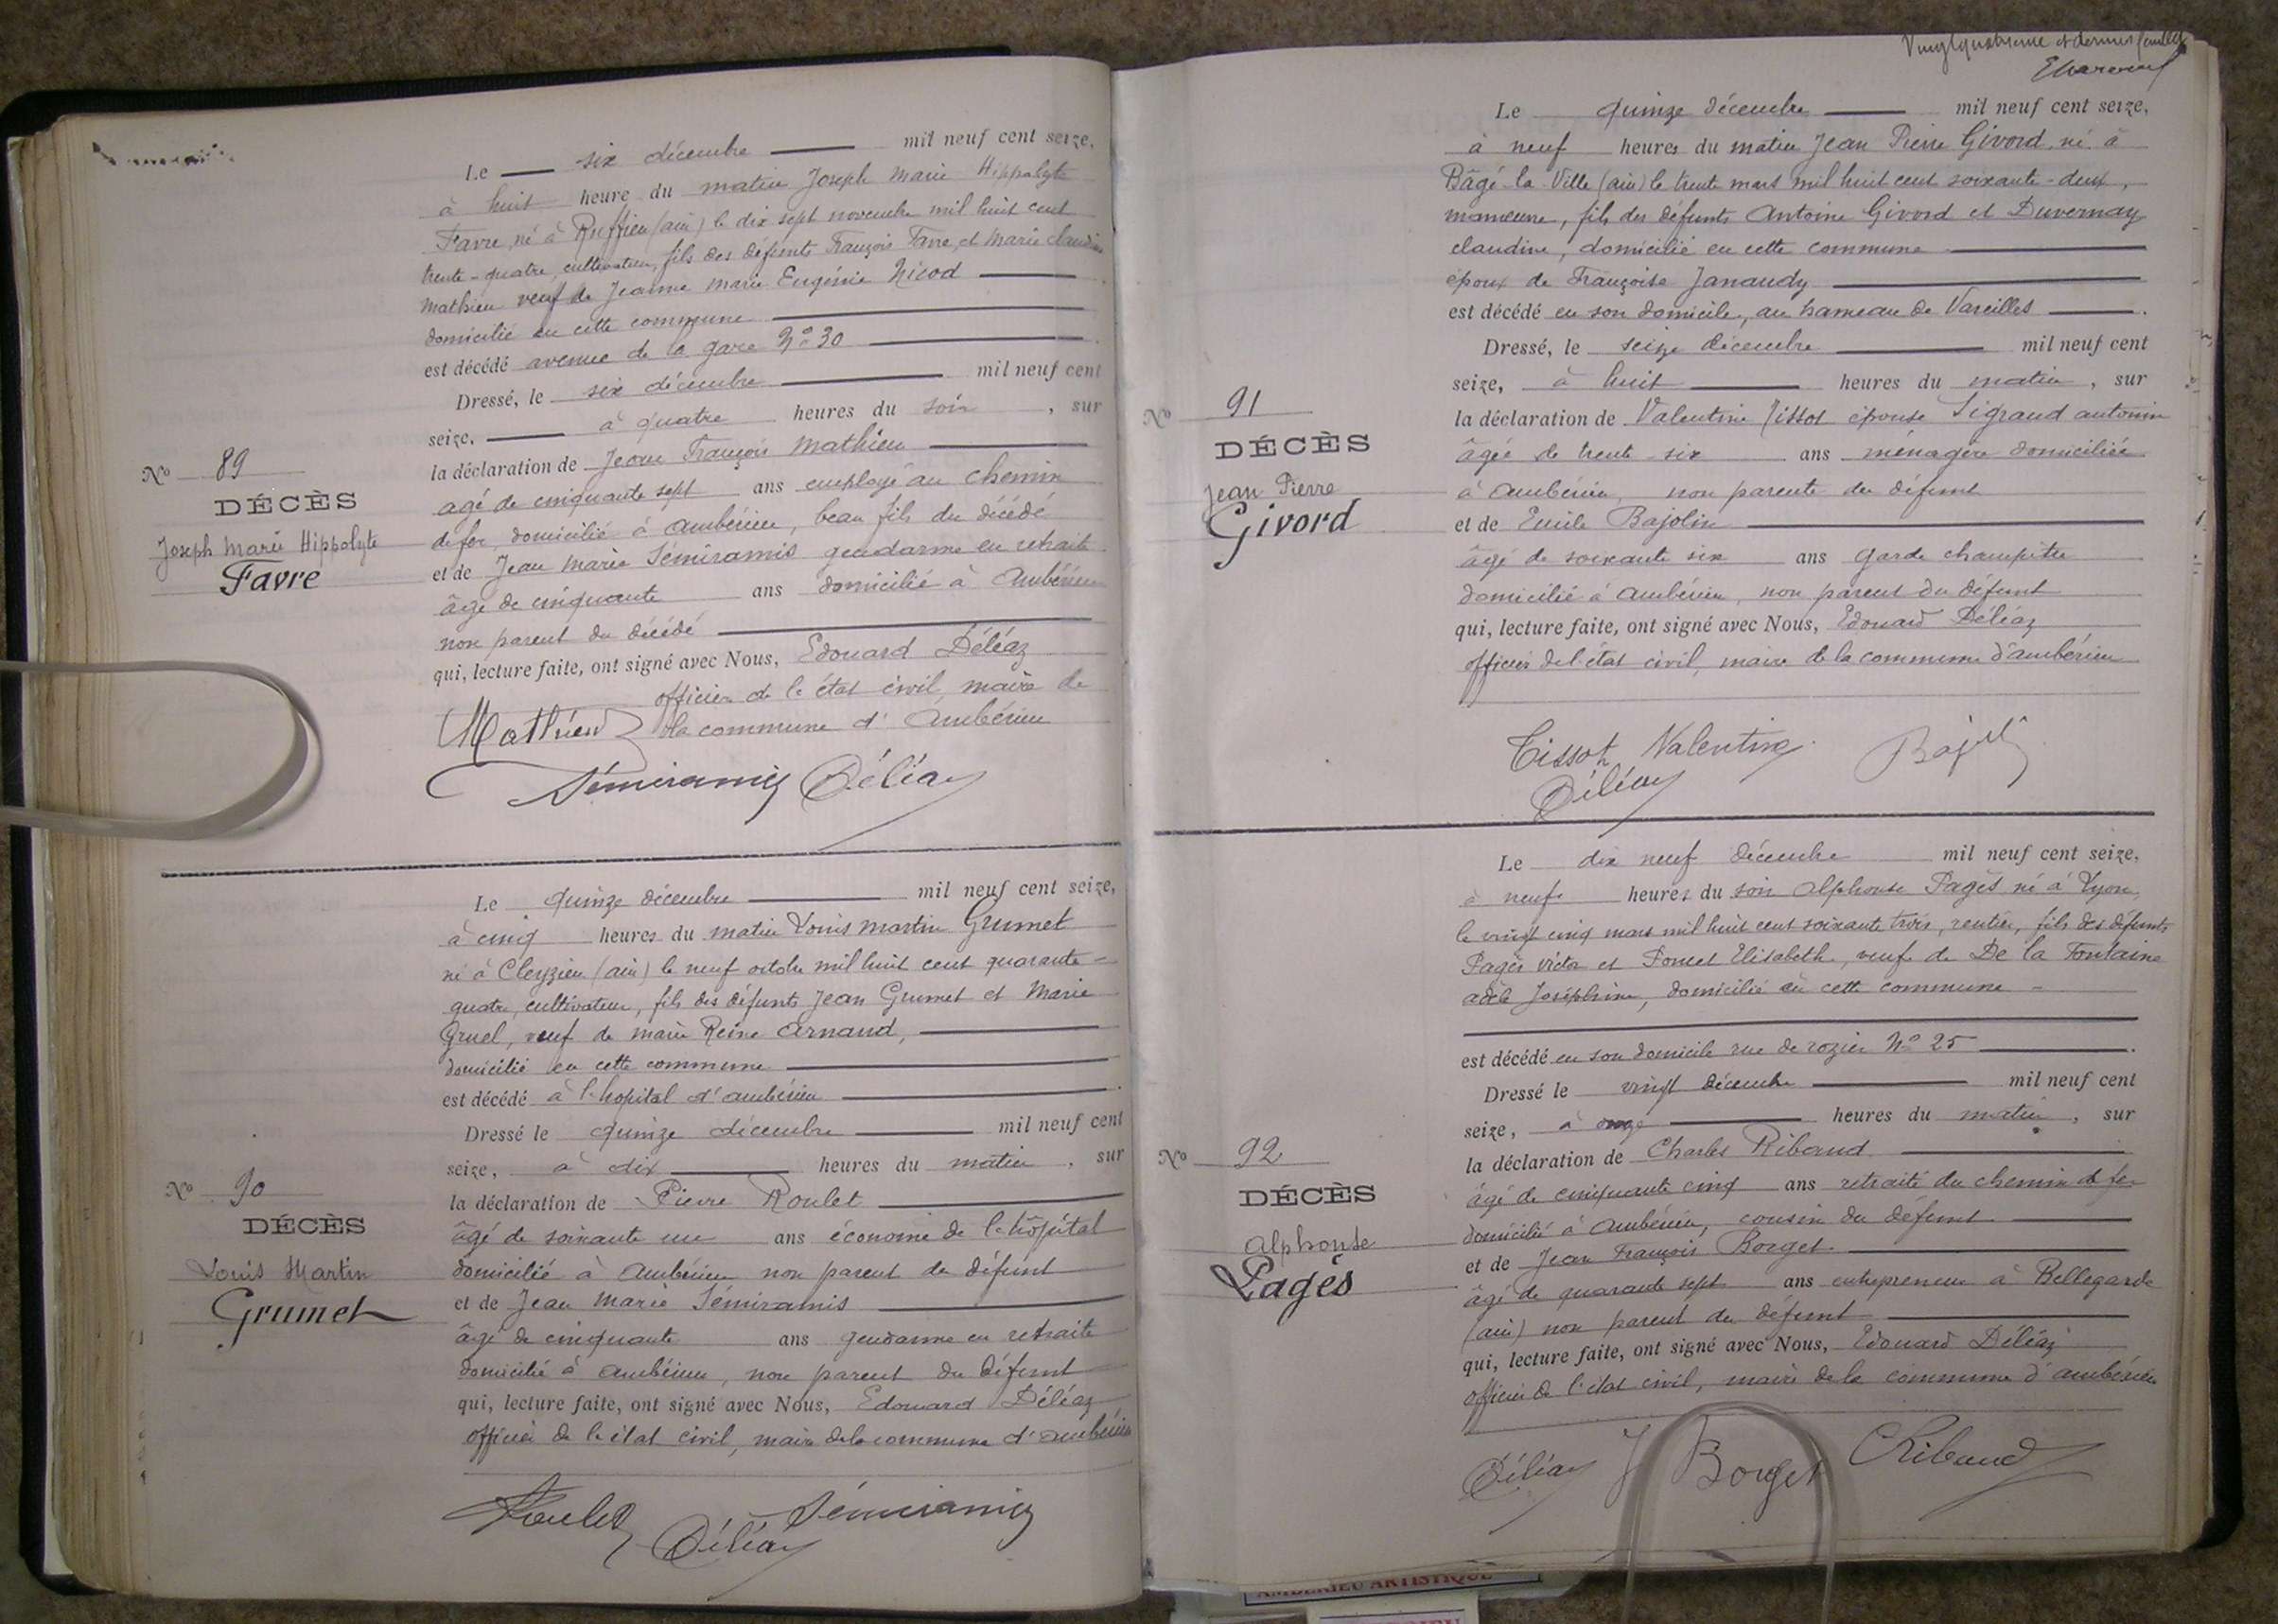 Le six décembre mil neuf cent seize,
à huit heure du matin Joseph Marie Hippolyte
Favre, né à Ruffieu (ain) le dix sept novembre mil huit cent
trente-quatre, cultivateur, fils des défunts François Favre et Marie Claudine
Mathieu veuf de Jeanne Marie Eugénie Nicod
domicilié en cette commune
est décédé avenue de la gare No 30
Dressé, le six décembre mil neuf cent
seize, à quatre heures du soir, sur
la déclaration de Jean François Mathieu
agé de cinquante sept ans employé au chemin
de fer, domicilié à Ambérieu, beau fils du décédé
et de Jean Marie Sémiramis gendarme en retraite
âgé de cinquante ans domicilié à Ambérieu
non parent du décédé
qui, lecture faite, ont signé avec Nous, Edouard Déléaz
officier de l'état civil, maire de
la commune d'Ambérieu
Mathieu
Sémiramis Déléaz
No 89
DÉCÈS
Joseph Marie Hippolyte
Favre
Le quinze décembre mil neuf cent seize,
à cinq heures du matin Louis Martin Grumet
né à Cleyzieu (ain) le neuf octobre mil huit cent quarante-
quatre, cultivateur, fils des défunts Jean Grumet et Marie
Gruel, veuf de Marie Reine Arnaud,
domicilié en cette commune
est décédé à l'hopital d'ambérieu
Dressé le quinze décembre mil neuf cent
seize, à dix heures du matin, sur
la déclaration de Pierre Roulet
âgé de soixante une ans économe de l'hôpital
domicilié à Ambérieu non parent du défunt
et de Jean Marie Sémiramis
âgé de cinquante ans gendarme en retraite
domicilié à Ambérieu, non parent du défunt
qui, lecture faite, ont signé avec Nous, Edouard Déléaz
officier de l'état civil, maire de la commune d'ambérieu
Roulet Sémiramis
Déléaz
No 90
DÉCÈS
Louis Martin
Grumet
Vingtquatrieme et dernier feuillet
Le quinze décembre mil neuf cent seize,
à neuf heures du matin Jean Pierre Givord, né à
Bâgé-la-Ville (ain) le trente mars mil huit cent soixante-deux,
manœuvre, fils des défunts Antoine Givord et Duvernay
claudine, domicilié en cette commune
époux de Françoise Janaudy
est décédé en son domicile, au hameau de Vareilles.
Dressé, le seize décembre mil neuf cent
seize, à huit heures du matin, sur
la déclaration de Valentine Tissot épouse Sigraud antonin
âgée de trente-six ans ménagère domiciliée
à ambérieu, non parente du défunt
et de Emile Bajolin
âgé de soixante six ans garde champêtre
domicilié à ambérieu, non parent du défunt
qui, lecture faite, ont signé avec Nous, Edouard Déléaz
officier de l'état civil, maire de la commune d'ambérieu
Tissot Valentine
Déléaz
No 91
DÉCÈS
Jean Pierre
Givord
Le dix neuf décembre mil neuf cent seize,
à neuf heures du soir Alphonse Pagès né à Lyon,
le vingt cinq mars mil huit cent soixante trois, rentier, fils des défunts
Pagès Victor et Poncet Elisabeth, veuf de De la Fontaine
adèle Joséphine, domicilié en cette commune
est décédé en son domicile rue de rozier No 25
Dressé le vingt décembre mil neuf cent
seize, à onze heures du matin, sur
la déclaration de Charles Ribaud
âgé de cinquante cinq ans retraité du chemin de fer
domicilié à Ambérieu, cousin du défunt
et de Jean François Borget
âgé de quarante sept ans entrepreneur à Bellegarde
(ain) non parent du défunt
qui, lecture faite, ont signé avec Nous, Edouard Déléaz
officier de l'état civil, maire de la commune d'ambérieu
Déléaz J Borget CRibaud
No 92
DÉCÈS
Alphonse
Pagès
AMBERIEU ARTISTIQUE